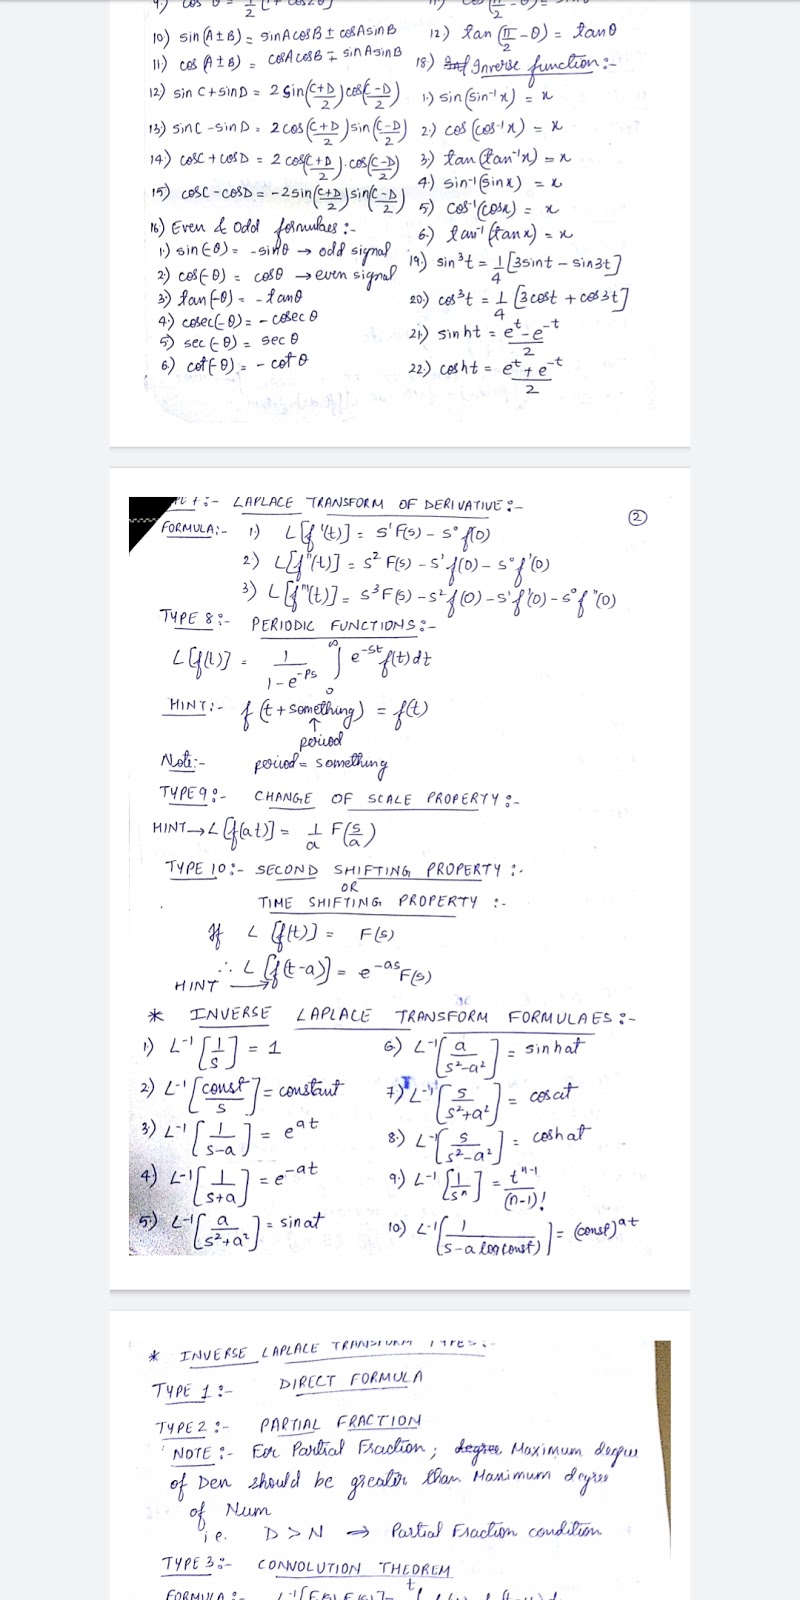 10) sin(A±B) = sinAcosB ± cosAsinB
11) cos(A±B) = cosAcosB ∓ sinAsinB
12) sinC+sinD = 2sin(C+D/2)cos(C-D/2)
13) sinC-sinD = 2cos(C+D/2)sin(C-D/2)
14) cosC+cosD = 2cos(C+D/2).cos(C-D/2)
15) cosC-cosD = -2sin(C+D/2)sin(C-D/2)
16) Even & Odd formulaes :-
1) sin(-θ) = -sinθ → odd signal
2) cos(-θ) = cosθ → even signal
3) tan(-θ) = -tanθ
4) cosec(-θ) = -cosecθ
5) sec(-θ) = secθ
6) cot(-θ) = -cotθ
12) tan(π/2 - θ) = tanθ
18) Inverse function :-
1) sin(sin⁻¹x) = x
2) cos(cos⁻¹x) = x
3) tan(tan⁻¹x) = x
4) sin⁻¹(sinx) = x
5) cos⁻¹(cosx) = x
6) tan⁻¹(tanx) = x
19) sin³t = 1/4 [3sint - sin3t]
20) cos³t = 1/4 [3cost + cos3t]
21) sinht = eᵗ - e⁻ᵗ / 2
22) cosht = eᵗ + e⁻ᵗ / 2
LAPLACE TRANSFORM OF DERIVATIVE :-
②
FORMULA :- 1) L[f'(t)] = s'F(s) - s°f(0)
2) L[f''(t)] = s²F(s) - s'f(0) - s°f'(0)
3) L[f'''(t)] = s³F(s) - s²f(0) - s'f'(0) - s°f''(0)
TYPE 8 :- PERIODIC FUNCTIONS :-
L[f(t)] = 1/(1-e⁻ᴾˢ) ∫₀^∞ e⁻ˢᵗ f(t)dt
HINT :- f(t+something) = f(t)
↑
period
Note :- period = something
TYPE 9 :- CHANGE OF SCALE PROPERTY :-
HINT → L[f(at)] = 1/a F(s/a)
TYPE 10 :- SECOND SHIFTING PROPERTY :-
OR
TIME SHIFTING PROPERTY :-
If L[f(t)] = F(s)
∴ L[f(t-a)] = e⁻ᵃˢF(s)
HINT →
* INVERSE LAPLACE TRANSFORM FORMULAES :-
1) L⁻¹[1/s] = 1
2) L⁻¹[const/s] = constant
3) L⁻¹[1/(s-a)] = eᵃᵗ
4) L⁻¹[1/(s+a)] = e⁻ᵃᵗ
5) L⁻¹[a/(s²+a²)] = sinat
6) L⁻¹[a/(s²-a²)] = sinhat
7) L⁻¹[s/(s²+a²)] = cosat
8) L⁻¹[s/(s²-a²)] = coshat
9) L⁻¹[1/sⁿ] = tⁿ⁻¹/(n-1)!
10) L⁻¹[1/(s-a log const)] = (const)ᵃᵗ
* INVERSE LAPLACE TRANSFORM TYPES :-
TYPE 1 :- DIRECT FORMULA
TYPE 2 :- PARTIAL FRACTION
NOTE :- For Partial Fraction ; degree Maximum degree
of Den should be greater than Maximum degree
of Num
i.e. D > N ⇒ Partial Fraction condition
TYPE 3 :- CONVOLUTION THEOREM
FORMULA :-